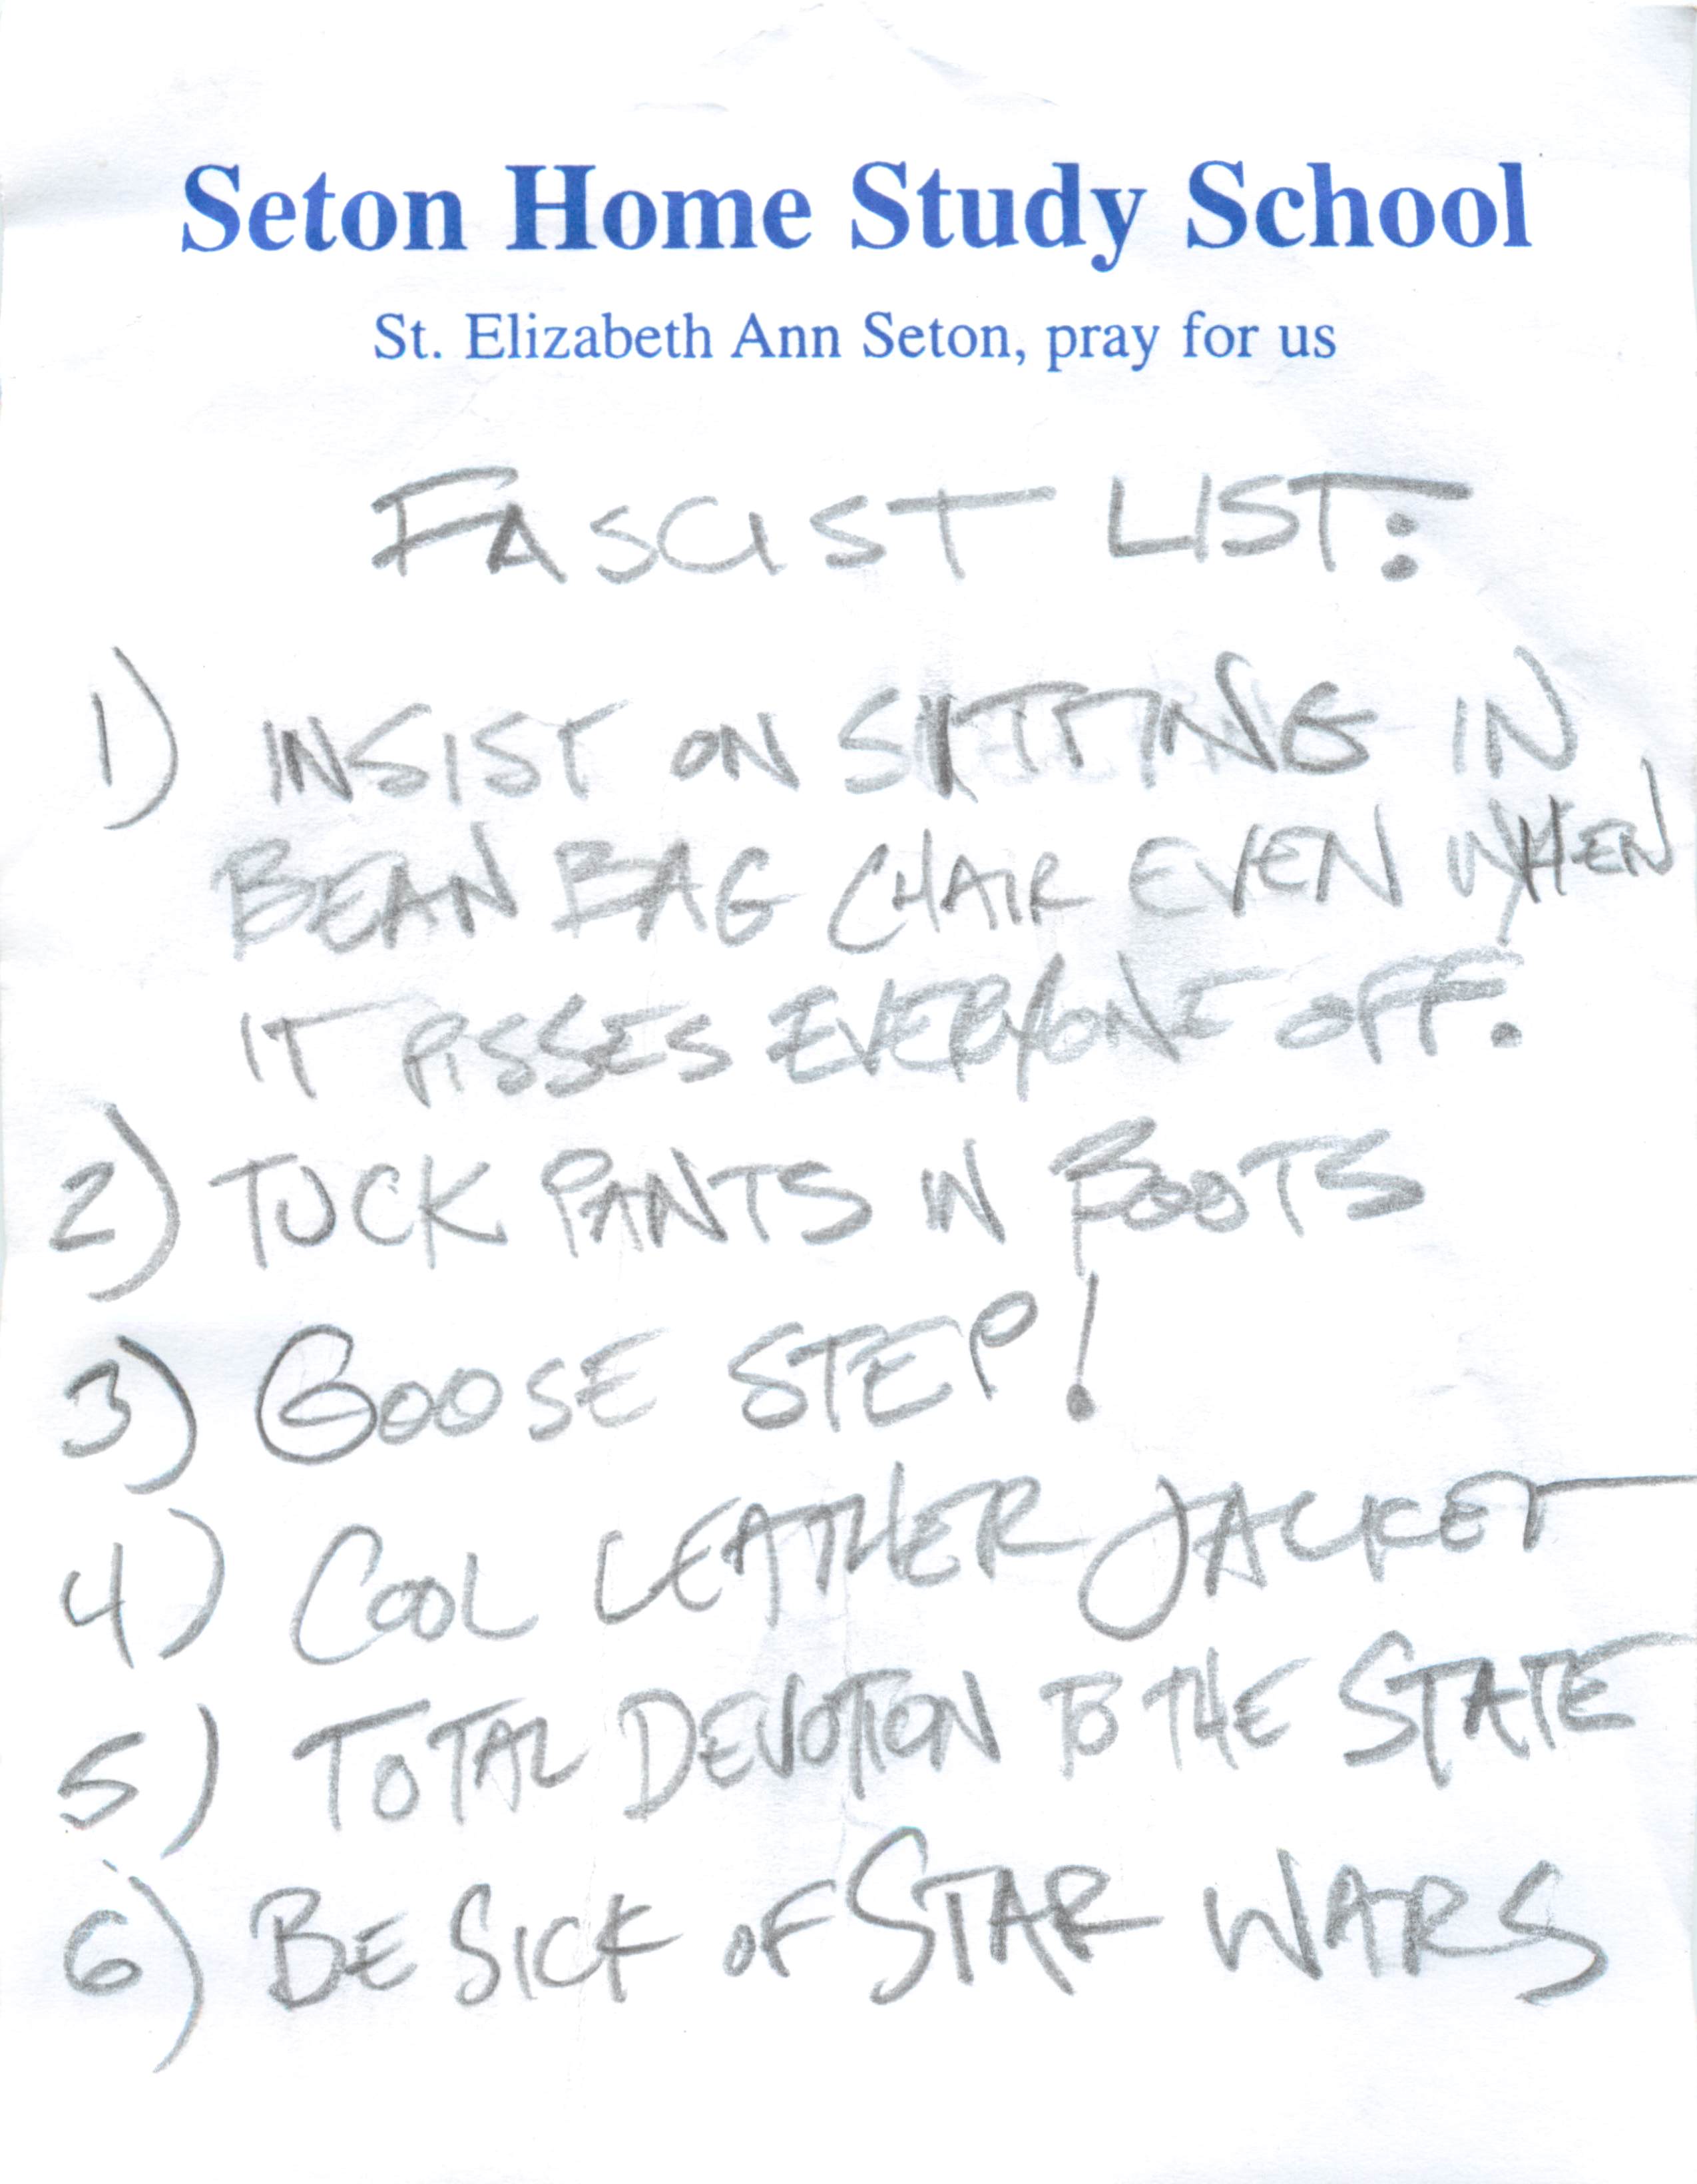 Seton Home Study School
St. Elizabeth Ann Seton, pray for us
FASCIST LIST:
1) INSIST ON SITTING IN
BEAN BAG CHAIR EVEN WHEN
IT PISSES EVERYONE OFF.
2) TUCK PANTS IN BOOTS
3) GOOSE STEP!
4) COOL LEATHER JACKET
5) TOTAL DEVOTION TO THE STATE
6) BE SICK OF STAR WARS